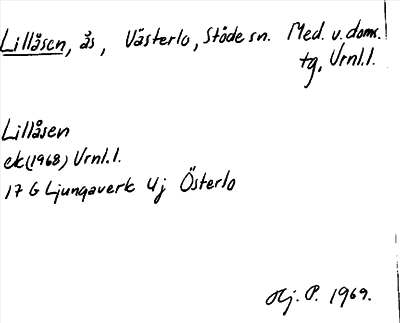 Lillåsen, ås, Västerlo, Stöde sn. Med. v. doms.
tg, Vrnl.l.
Lillåsen
ek (1968) Vrnl.l.
17 G Ljungaverk 4j Österlo
Hj. P. 1969.